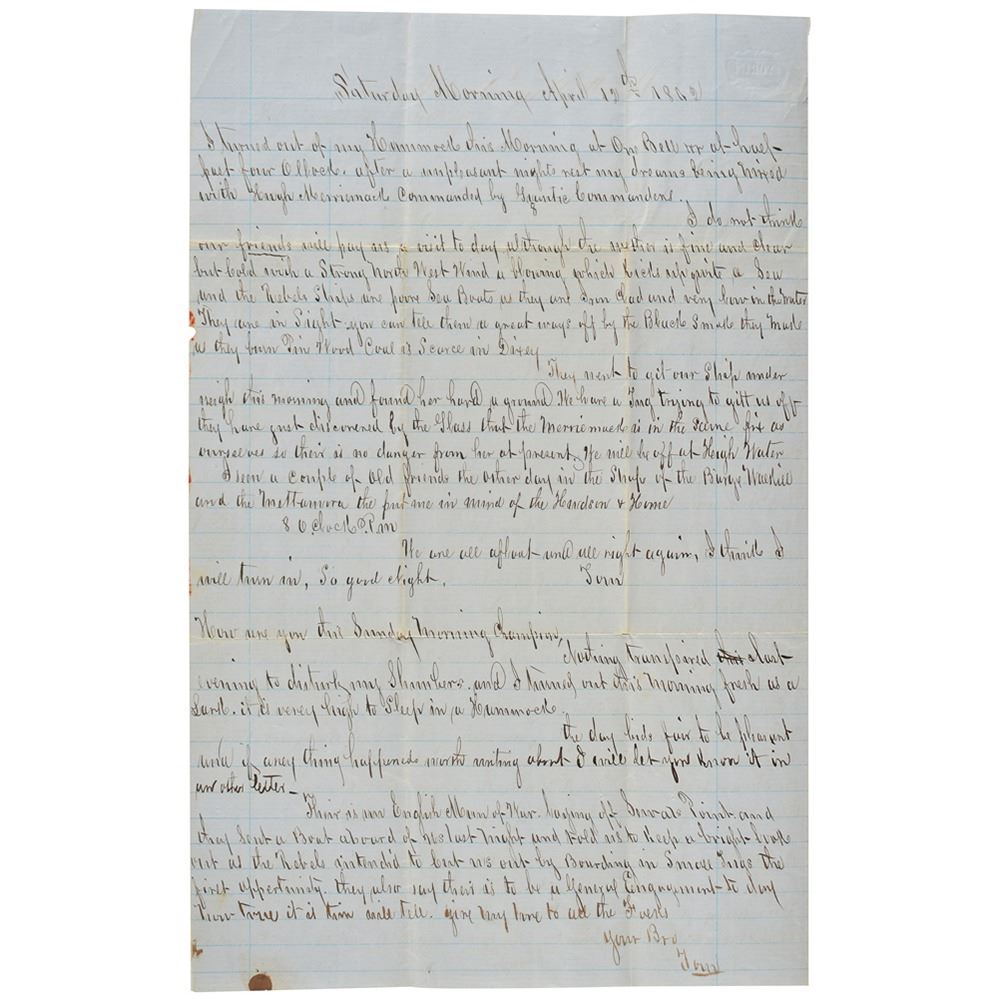 Saturday Morning April 12th 1862
I turned out of my Hammock this Morning at One Bell or at half
past four Oclock. after a unpleasant nights rest my dreams being mixed
with Hugh Merrimack Commanded by Gyantic Commanders.
I do not think
our friends will pay us a visit to day although the wether is fine and clear
but Cold with a Strong North West Wind a blowing which kicks up quite a Sea
and the Rebels Ships are poore Sea Boats as they are Iron Clad and very low in the water
They are in Sight you can tell them a great ways off by the Black Smoke they make
as they burn Pin Wood Coal is Scarce in Dixey
They went to git our Ship under
weigh this morning and found her hard a ground We have a Tug trying to gitt us off
they have just discovered by the Glass that the Merriemack is in the same fix as
ourselves so their is no danger from her at present. We will be off at High Water
I seen a couple of old friends the other day in the Shape of the Barge Wallkill
and the Mettamora the put me in mind of the Hudson & Home
8 O,clock P.m
We are all afloat and all right again, I think I
will turn in, So good Night. Tom
How are you this Sunday Morning Champion,
Nothing transpired last
evening to disturb my Slumbers. and I turned out this morning fresh as a
Lark. it is verey high to Sleep in a Hammock.
the day bids fair to be pleasant
and if aney thing happends worth writing about I will let you know it in
an other letter -
Their is an English Man of War. laying of Point and
they sent a Boat aboard of us last night and told us to keep a bright look
out as the Rebels intendid to cut us out by Boarding in Small Tugs the
first oppertunity. they also say their is to be a General Engagement to day
how true it is tim will tell. give my love to all the Foeks
Your Bro
Tom